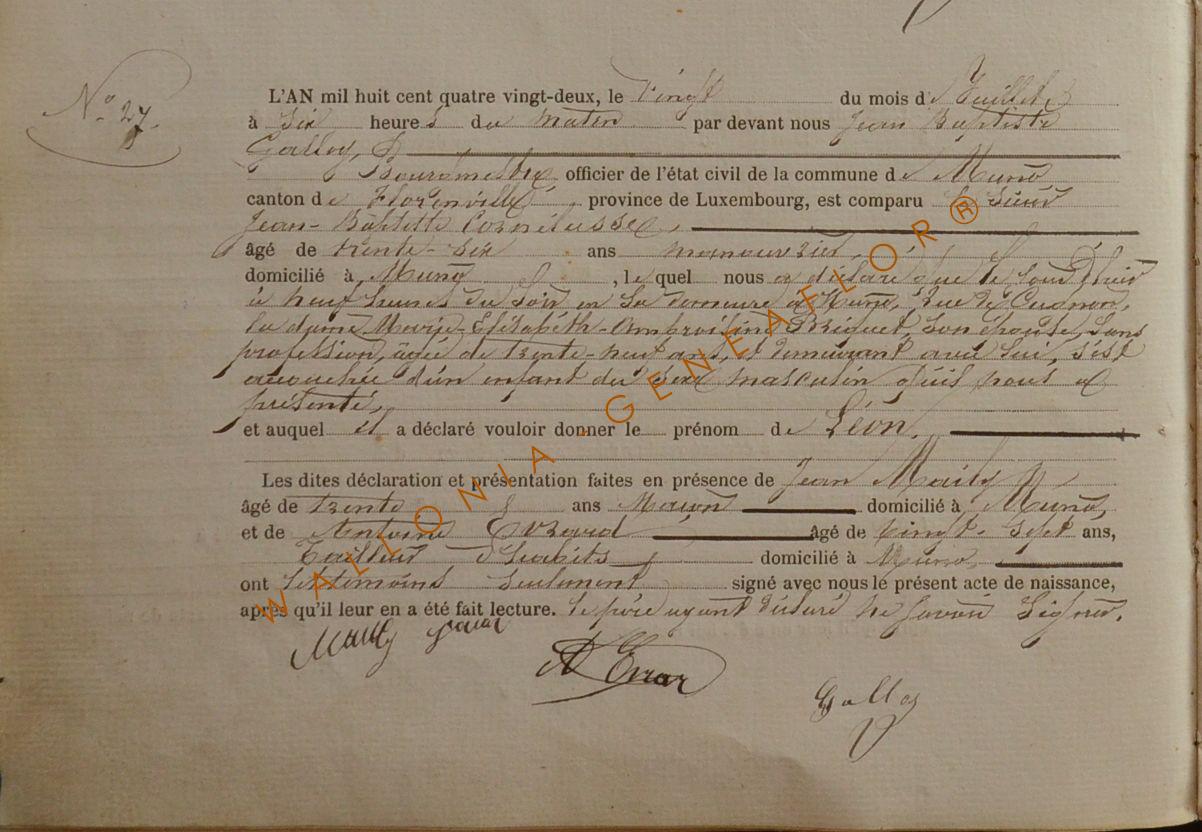 No. 27.
L'AN mil huit cent quatre vingt-deux, le vingt du mois de Juillet,
à six heures du matin par devant nous Jean Baptiste
Galloy,
Bourgmestre officier de l'état civil de la commune de Muno
canton de Florenville, province de Luxembourg, est comparu le sieur
Jean-Baptiste Cornélusse,
âgé de trente-six ans manouvrier,
domicilié à Muno, lequel nous a déclaré que le jour d'hier
à neuf heures du soir en sa demeure à Muno, rue de Cugnon,
la dame Marie-Elisabeth-Ambroisine Briquet, son épouse, sans
profession, âgée de trente-neuf ans, et demeurant avec lui, s'est
accouchée d'un enfant du sexe masculin qu'il nous a
présenté,
et auquel il a déclaré vouloir donner le prénom de Léon.
Les dites déclaration et présentation faites en présence de Jean Mailly
âgé de trente ans Maçon domicilié à Muno,
et de Antoine Evrard âgé de vingt-sept ans,
Tailleur d'habits domicilié à Muno,
ont les témoins seulement signé avec nous le présent acte de naissance,
après qu'il leur en a été fait lecture. le père ayant déclaré ne savoir signer.
Mailly
Galloy
WALLONIA - GENEAFLOR®